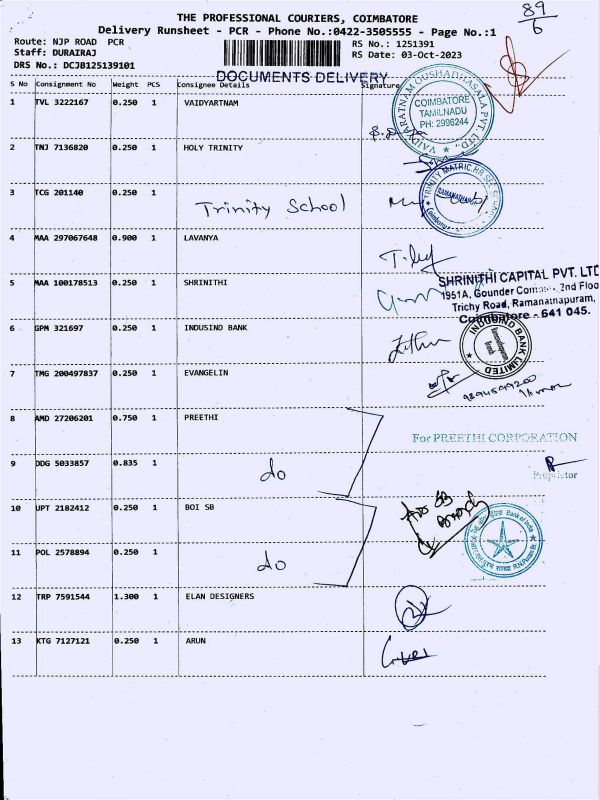 89
6
THE PROFESSIONAL COURIERS, COIMBATORE
Delivery Runsheet - PCR - Phone No.:0422-3505555 - Page No.:1
Route: NJP ROAD PCR
RS No.: 1251391
Staff: DURAIRAJ
RS Date: 03-Oct-2023
DRS No.: DCJB125139101
DOCUMENTS DELIVERY
S No Consignment No Weight PCS Consignee Details Signature
1 TVL 3222167 0.250 1 VAIDYARTNAM
VAIDYARATNAM OUSHADHASALA PVT. LTD.
COIMBATORE
TAMILNADU
PH: 2996244
2 TNJ 7136820 0.250 1 HOLY TRINITY
TRINITY MATRIC.HR.SEC.
3 TCG 201140 0.250 1 Trinity School
4 MAA 297067648 0.900 1 LAVANYA
5 MAA 100178513 0.250 1 SHRINITHI
SHRINITHI CAPITAL PVT. LTD
1951A, Gounder 2nd Floo
Trichy Road, Ramanathapuram,
Coimbatore - 641 045.
6 GPM 321697 0.250 1 INDUSIND BANK
INDUSIND BANK LIMITED
7 TMG 200497837 0.250 1 EVANGELIN
9894599200
8 AMD 27206201 0.750 1 PREETHI
For PREETHI CORPORATION
9 DDG 5033857 0.835 1 do
Proprietor
10 UPT 2182412 0.250 1 BOI SB
Bank of India
11 POL 2578894 0.250 1 do
12 TRP 7591544 1.300 1 ELAN DESIGNERS
13 KTG 7127121 0.250 1 ARUN